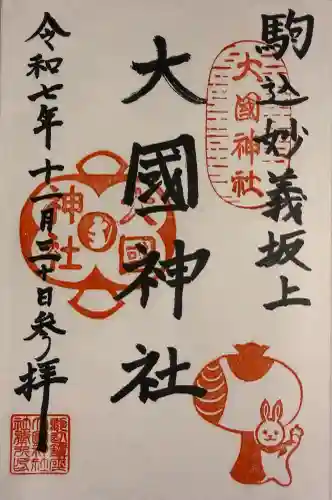 駒込妙義坂上
大國神社
大國神社
大國
神社
令和七年十二月三十日参拝